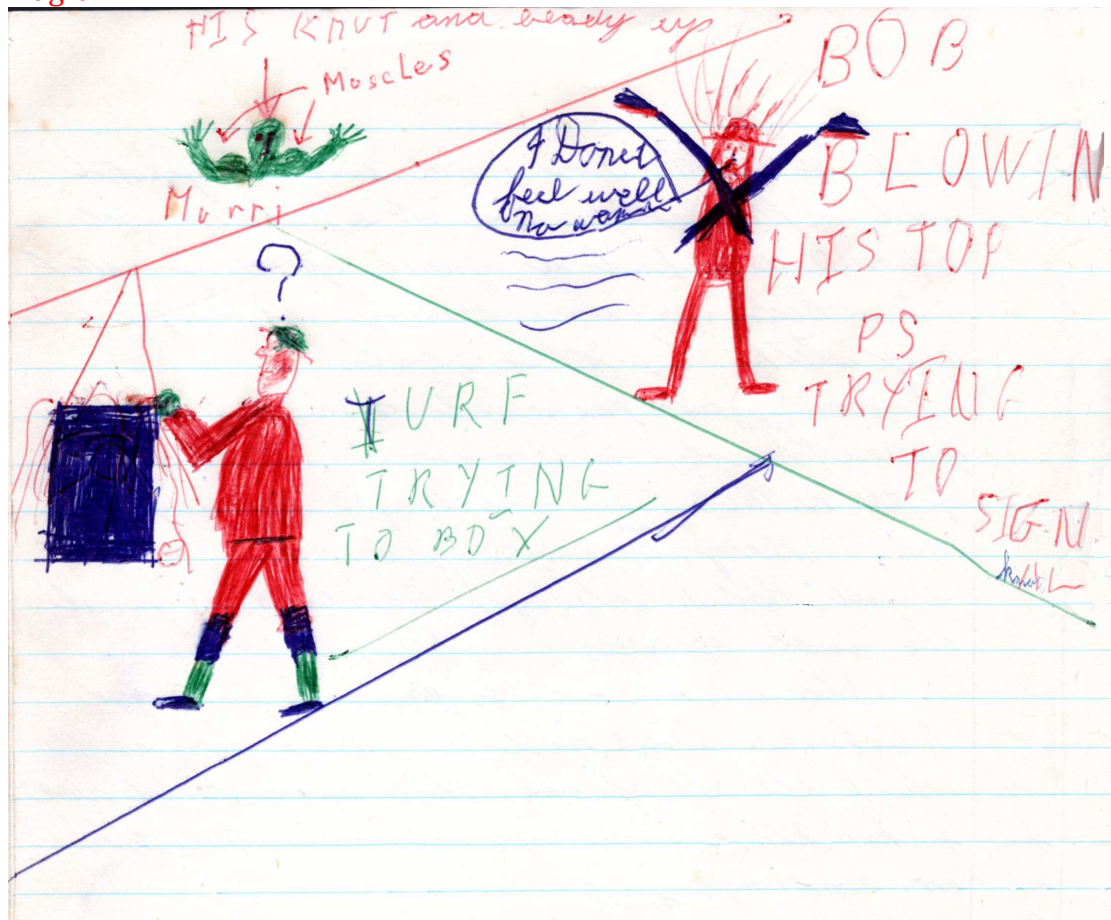 HIS KNUT and beady up
Muscles
Murri
?
I Donet
feel well
No
BOB
BLOWIN
HIS TOP
PS
TRYING
TO
SIGN
TURF
TRYING
TO BOX